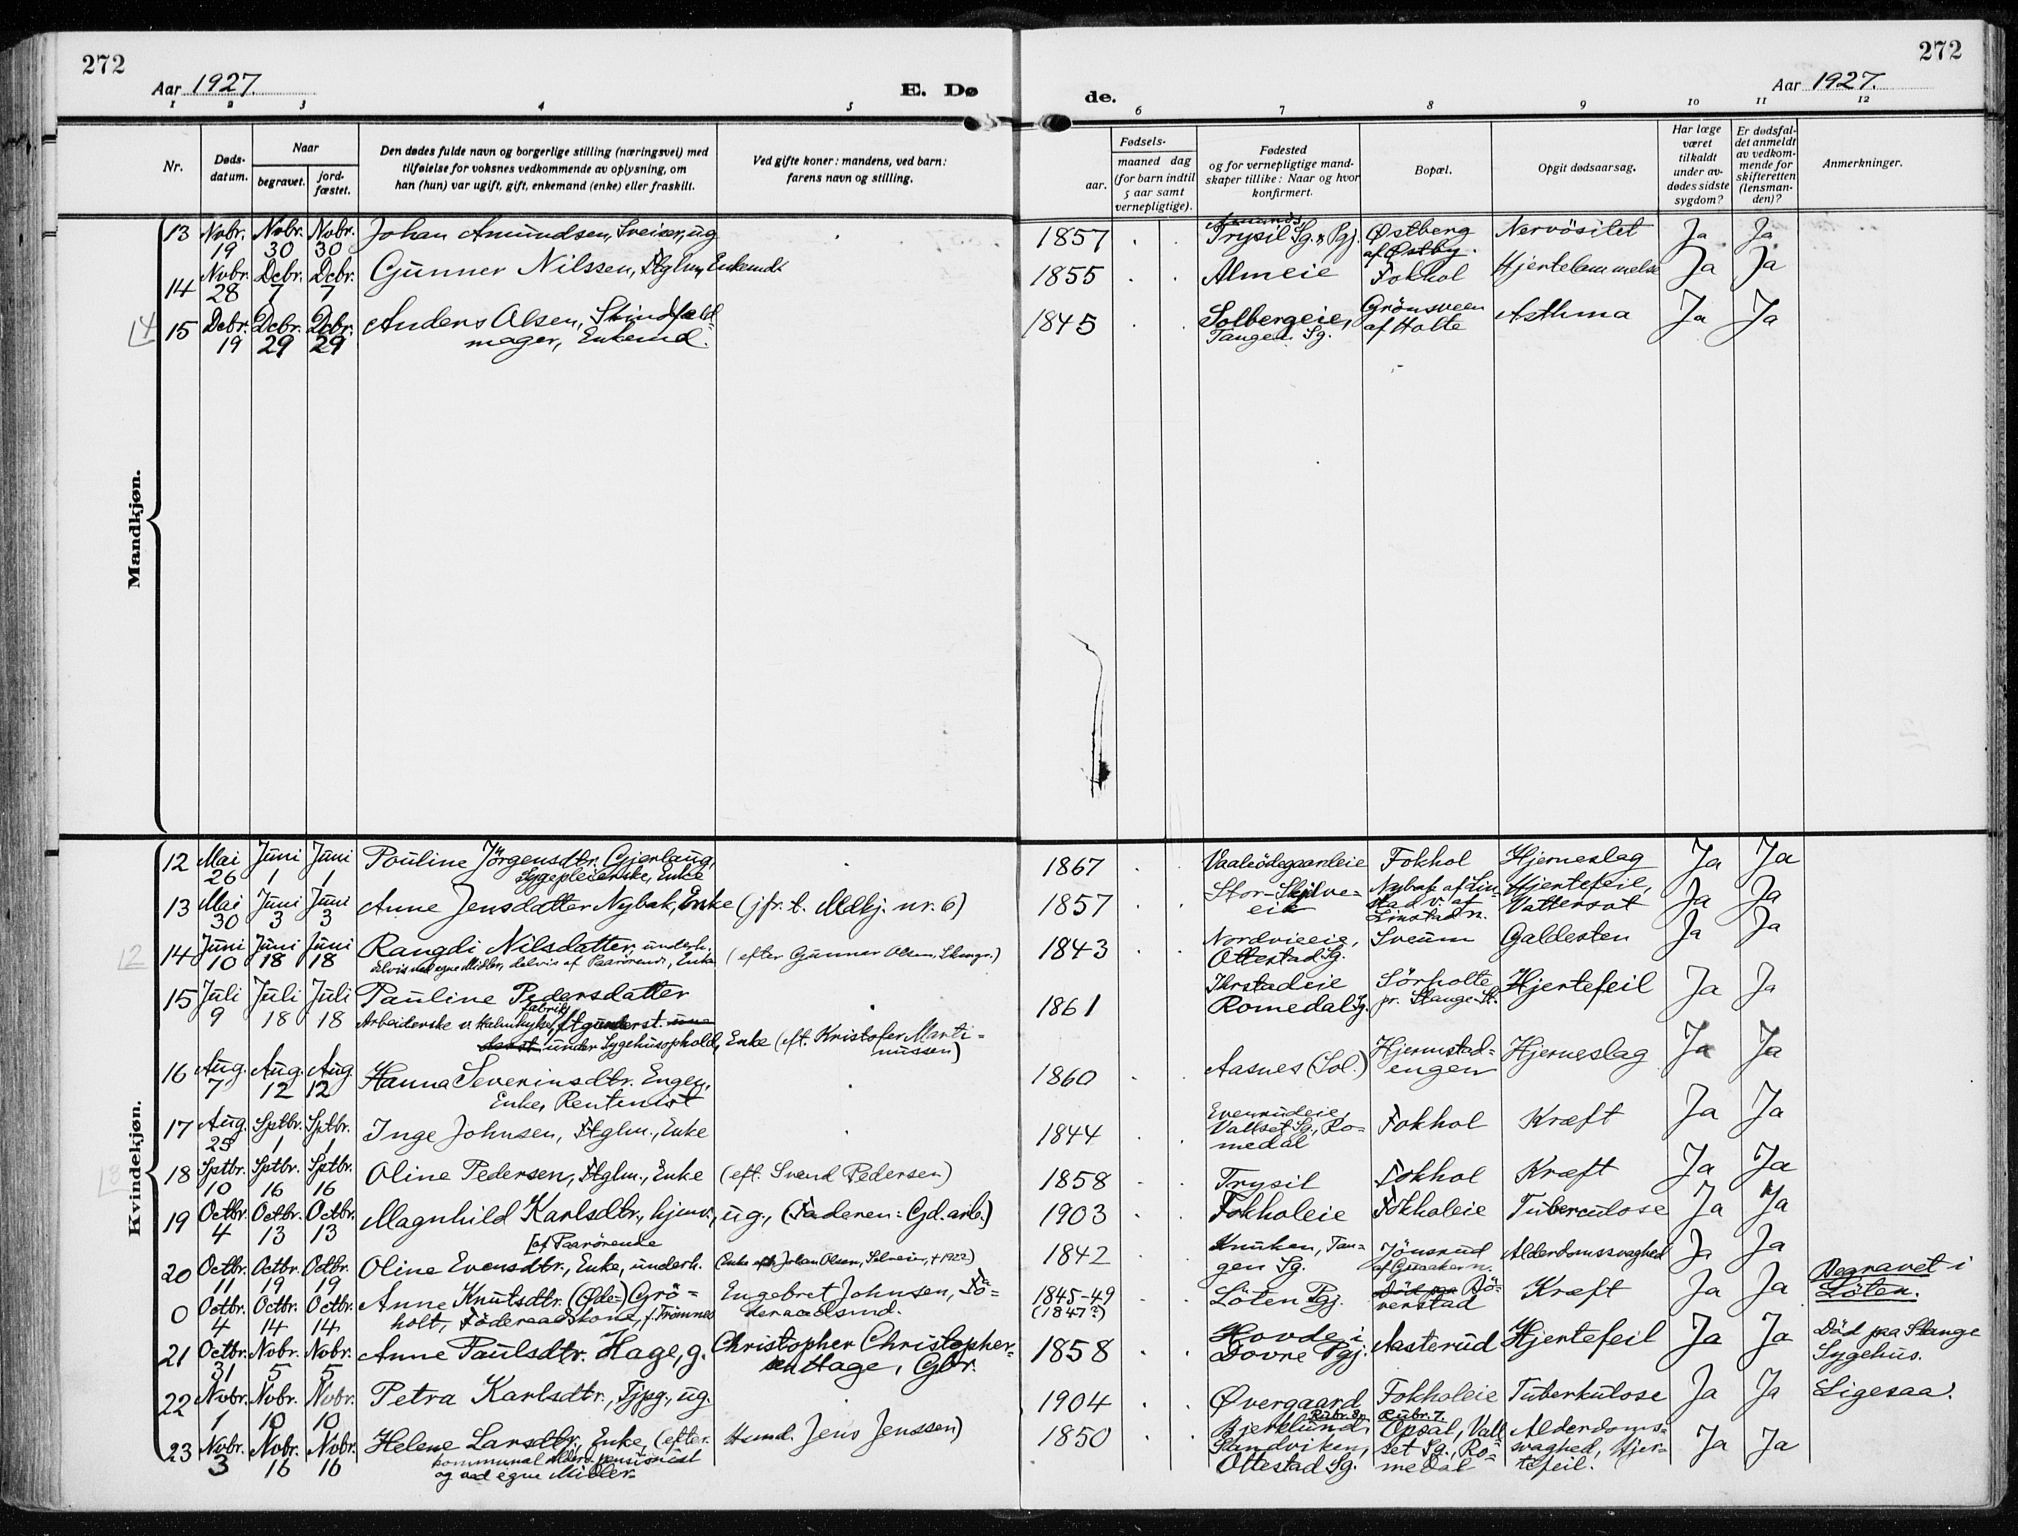 272
Aar 1927.
E. Dø
de.
Aar 1927.
272
1 2 3 4 5 6 7 8 9 10 11 12
Nr.
Døds-
datum.
Naar
begravet.
jord-
fæstet.
Den dødes fulde navn og borgerlige stilling (næringsvei) med
tilføielse for voksnes vedkommende av oplysning, om
han (hun) var ugift, gift, enkemand (enke) eller fraskilt.
Ved gifte koner: mandens, ved barn:
farens navn og stilling.
Fødsels-
aar.
maaned dag
(for barn indtil
5 aar samt
vernepligtige).
Fødested
og for vernepligtige mand-
skaper tillike: Naar og hvor
konfirmert.
Bopæl.
Opgit dødsaarsag.
Har læge
været
tilkaldt
under av-
dødes sidste
sygdom?
Er dødsfal-
det anmeldt
av vedkom-
mende for
skifteretten
(lensman-
den)?
Anmerkninger.
Mandkjøn.
13 Novbr. 19 Novbr. 30 Novbr. 30 Johan Amundsen, Sveiser, ug. 1857 Trysil Sg. & Pgj. Østberg af Østby. Nervösitet Ja Ja
14 Novbr. 28 Decbr. 7 Decbr. 7 Gunner Nilssen, Ftglm, Enkemd. 1855 Almeie Fokhol Hjertelammelse Ja Ja
14
15 Decbr. 19 Decbr. 29 Decbr. 29 Anders Olsen, Skindfæld-
mager, Enkemd. 1845 Solbergeie, Tangen Sg. Grönsveen af Holte Asthma Ja Ja
Kvindekjøn.
12 Mai 26 Juni 1 Juni 1 Pouline Jörgensdtr. Gjerlaug,
Sygepleierske, Enke 1867 Fokhol Hjerneslag Ja Ja
13 Mai 30 Juni 3 Juni 3 Anne Jensdatter Nybak, Enke (jfr. t. Mdkj. nr. 6) 1857 Nybak af Lin-
stad v. af Linstad n. Hjertefeil, Vattersot Ja Ja
12
14 Juni 10 Juni 18 Juni 18 Rangdi Nilsdatter, underh.
delvis ved egne Midler, delvis af Paarörende, Enke (efter Gunnar Olsen, ) 1843 Nordvieeie, Ottestad Sg. Sveum Galdesten Ja Ja
15 Juli 9 Juli 18 Juli 18 Pauline Pedersdatter
Arbeiderske v. fabrik, under Sygehusophold, Enke (eft. Kristofer Marti-
nussen) 1861 Romedal Sg. Sörholte pr. Stange St. Hjertefeil Ja Ja
16 Aug. 7 Aug. 12 Aug. 12 Hanna Severinsdtr. Engen,
Enke, Rentenist 1860 Aasnes (Sol.) Hjermstad-
engen Hjerneslag Ja Ja
17 Aug. 25 Sptbr. 1 Sptbr. 1 Inge Johnsen, Ftglm., Enke 1844 Evenrudeie, Vallset Sg., Ro-
medal Fokhol Kræft Ja Ja
13
18 Sptbr. 10 Sptbr. 16 Sptbr. 16 Oline Pedersen, Ftglm., Enke (eft. Svend Pedersen) 1858 Trysil Fokhol Kræft Ja Ja
19 Octbr. 4 Octbr. 13 Octbr. 13 Magnhild Karlsdtr., hjemv., ug., (Faderen: Gd.arb.) 1903 Fokholeie Fokholeie Tuberculose Ja Ja
20 Octbr. 11 Octbr. 19 Octbr. 19 Oline Evensdtr., Enke, underh.
[af Paarörende (Enke eft. Johan Olsen, Selveier, † 1922) 1842 Knuken, Tan-
gen Sg. Jönsrud af Guaker n. Alderdomssvaghed Ja Ja
0 Octbr. 4 Octbr. 14 Octbr. 14 Anne Knutsdtr. (Øde-) Grö-
holt, Föderaadskone, f. Trömnes Engebret Johnsen, Fö-
deraadsmd. 1845-49
(1847?) Löten Pgj. Död paa Rö-
verstad Kræft Ja Ja Begravet i
Löten.
21 Octbr. 31 Novbr. 5 Novbr. 5 Anne Paulsdtr. Hage, g. Christopher Christopher-
sen Hage, Gbr. 1858 Hovde i
Dovre Pgj. Aasterud Hjertefeil Ja Ja Död paa Stange
Sygehus.
22 Novbr. 1 Novbr. 10 Novbr. 10 Petra Karlsdtr., Tjpg, ug. 1904 Øvergaard Fokholeie Tuberkulose Ja Ja Ligesaa.
23 Novbr. 3 Novbr. 16 Novbr. 16 Helene Larsdtr., Enke (efter Husmd. Jens Jenssen)
kommunal Alderspensionist
og ved egne Midler. 1850 Rubr. 8. Bjerklund,
Sandviken,
Ottestad Sg. Rubr. 7. Opsal, Vall-
set Sg., Ro-
medal Alderdoms-
svaghed, Hjer-
tefeil. Ja Ja